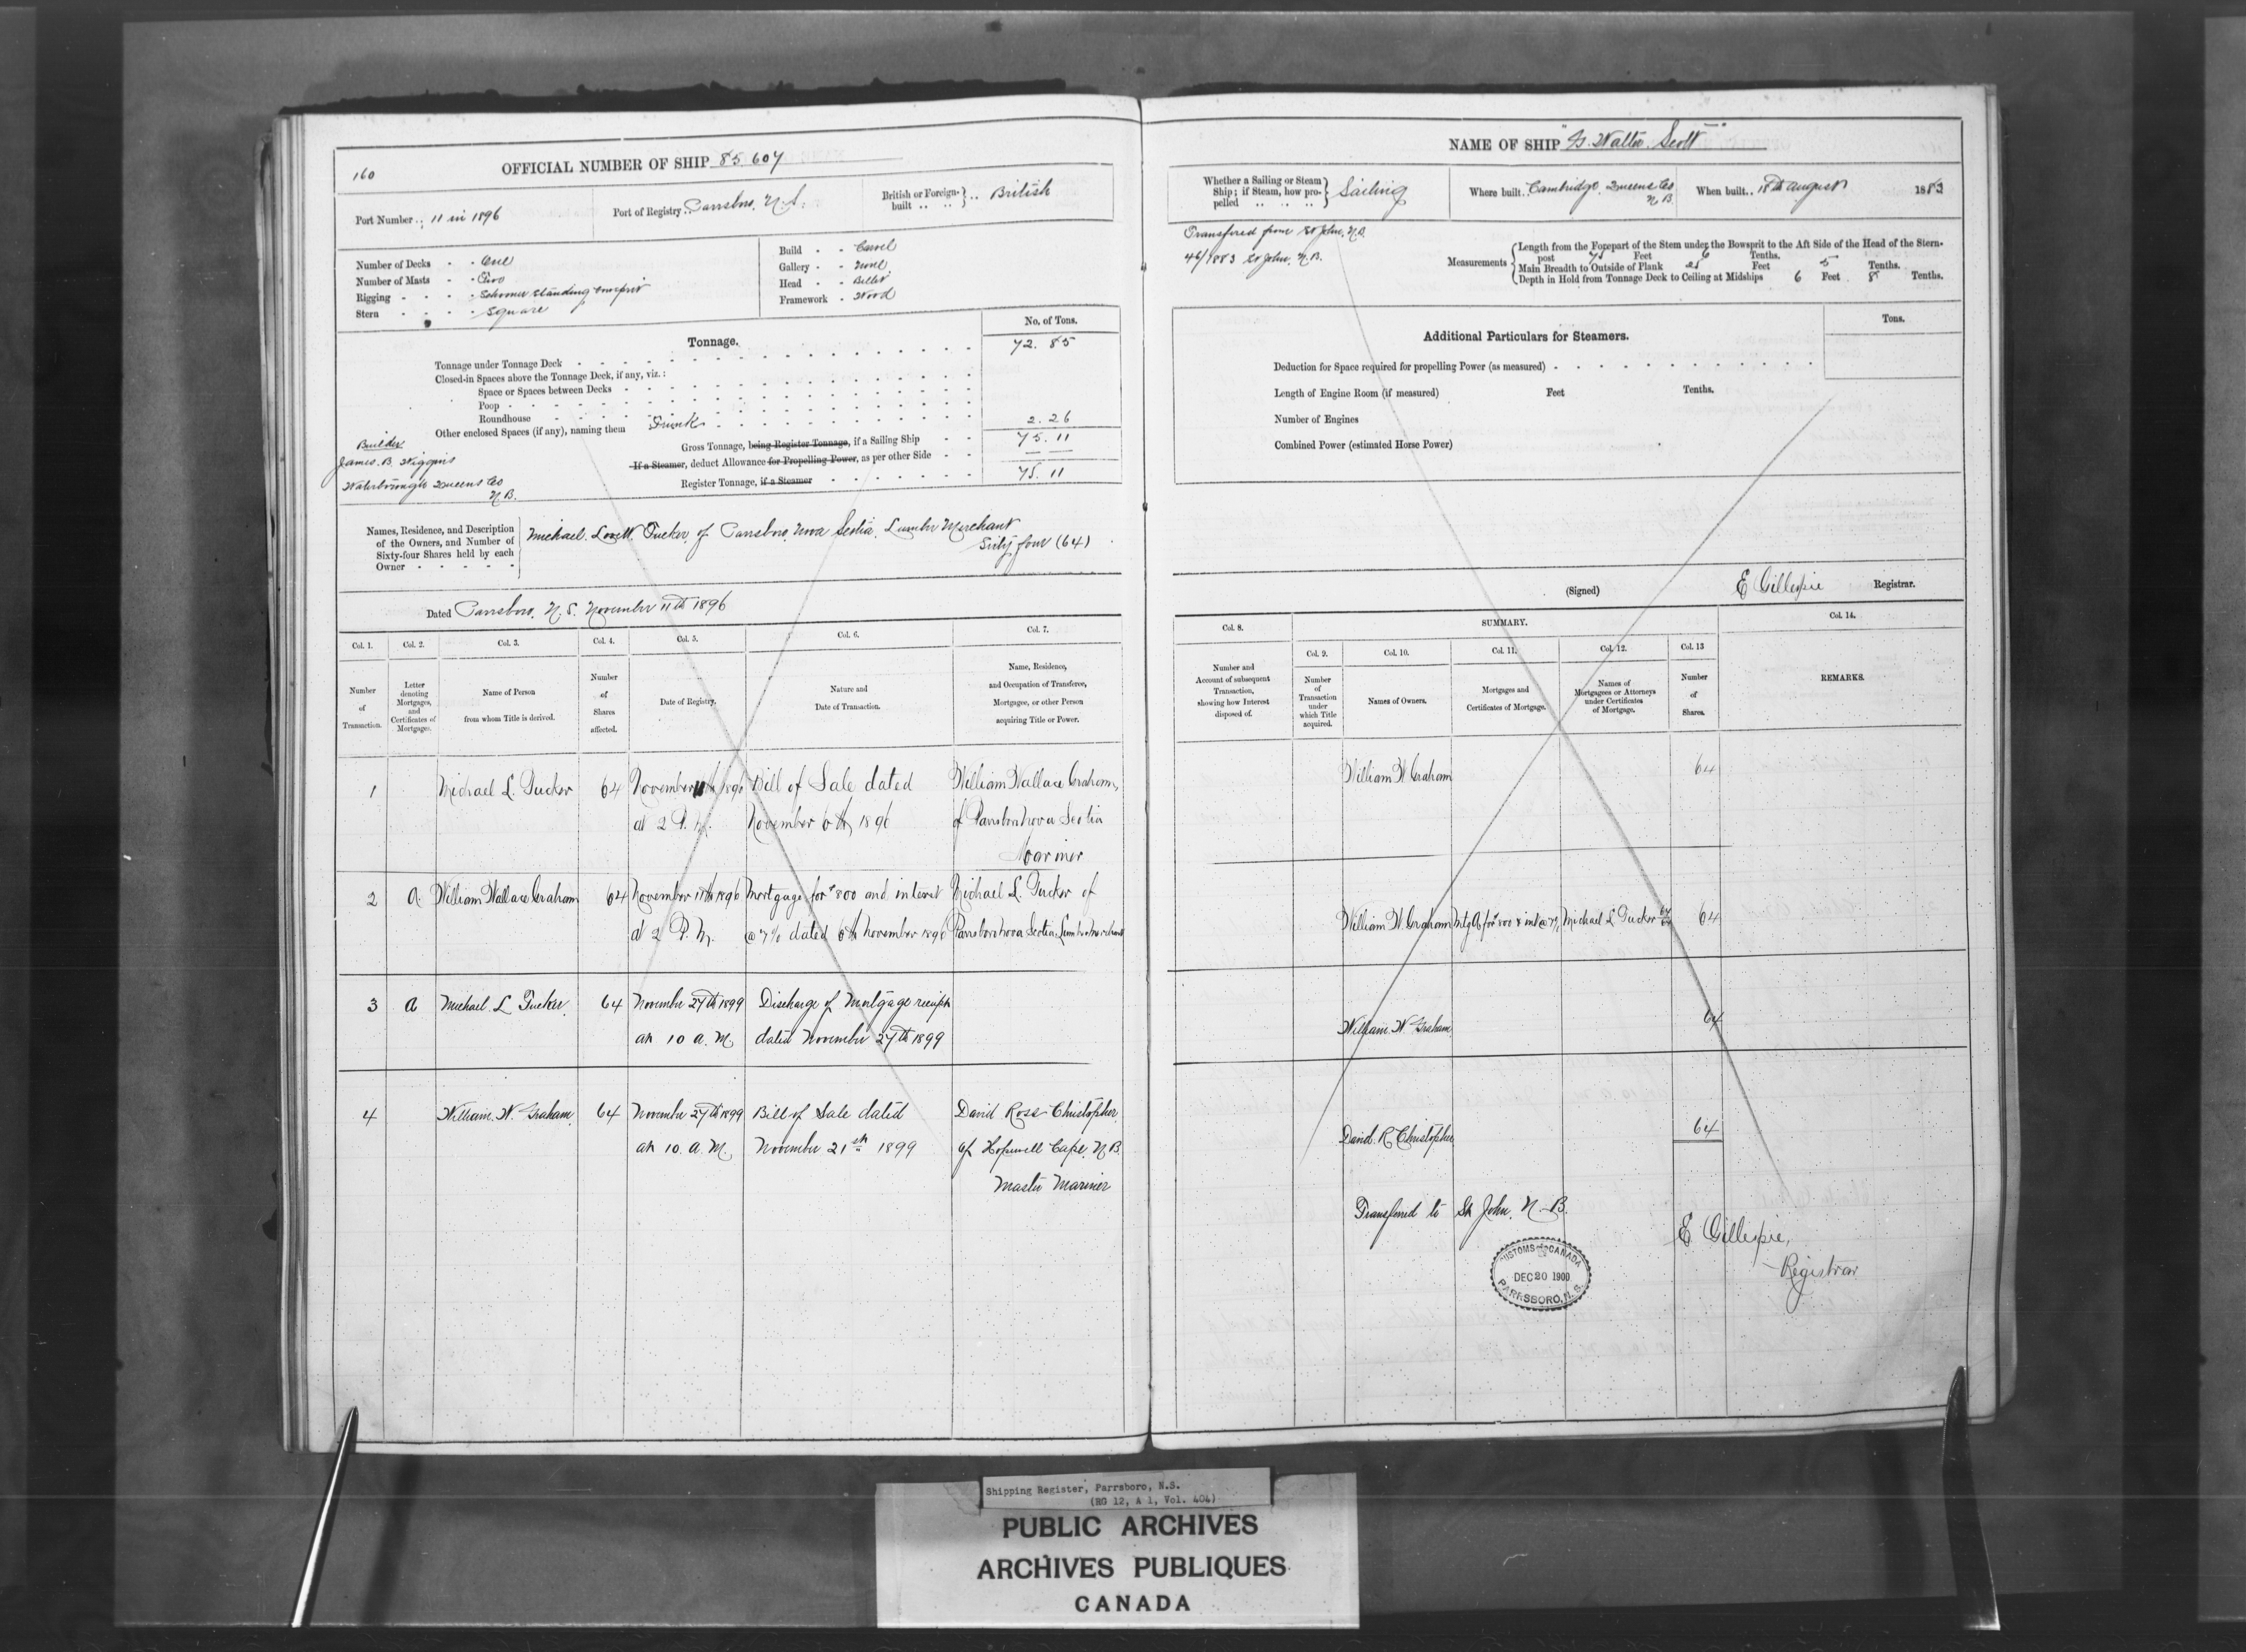 160
OFFICIAL NUMBER OF SHIP 85.607
Port Number .. 11 in 1896
Port of Registry .. Parrsboro, N.S.
British or Foreign-built .. British
Number of Decks - - One
Number of Masts - - Two
Rigging - - - - Schooner standing bowsprit
Stern - - - - Square
Build - - Carvel
Gallery - - None
Head - - Billet
Framework - Wood
Tonnage.
No. of Tons.
Tonnage under Tonnage Deck 72.85
Closed-in Spaces above the Tonnage Deck, if any, viz.:
Space or Spaces between Decks
Poop
Roundhouse
Other enclosed Spaces (if any), naming them Trunk 2.26
Gross Tonnage, being Register Tonnage, if a Sailing Ship 75.11
If a Steamer, deduct Allowance for Propelling Power, as per other Side
Register Tonnage, if a Steamer 75.11
Builder
James. B. Wiggins
Waterborough Queens Co
N.B.
Names, Residence, and Description
of the Owners, and Number of
Sixty-four Shares held by each
Owner
Michael. Lovett. Tucker, of Parrsboro, Nova Scotia, Lumber Merchant
Sixty four (64)
Dated Parrsboro, N.S. November 11th 1896
Col. 1. Col. 2. Col. 3. Col. 4. Col. 5. Col. 6. Col. 7.
Number of Transaction.
Letter denoting Mortgages, and Certificates of Mortgages.
Name of Person from whom Title is derived.
Number of Shares affected.
Date of Registry.
Nature and Date of Transaction.
Name, Residence, and Occupation of Transferee, Mortgagee, or other Person acquiring Title or Power.
1 Michael L. Tucker 64 November 11th 1896 Bill of Sale dated William Wallace Graham,
at 2 P.M. November 6th 1896 of Parrsboro Nova Scotia
Mariner
2 A. William Wallace Graham 64 November 11th 1896 Mortgage for $800 and interest Michael L. Tucker of
at 2 P.M. @ 7% dated 6th November 1896 Parrsboro Nova Scotia Lumber Merchant
3 A Michael L Tucker 64 November 27th 1899 Discharge of Mortgage receipt
at 10 a.M. dated November 27th 1899
4 William. W. Graham 64 November 27th 1899 Bill of Sale dated David Ross Christopher
at 10. a.M. November 21st 1899 of Hopewell Cape. N.B.
Master Mariner
NAME OF SHIP "G. Walter Scott"
Whether a Sailing or Steam Ship; if Steam, how propelled Sailing
Where built.. Cambridge, Queens Co
N.B.
When built.. 18th August 1883
Transfered from St John, N.B.
46/1883 St John, N.B.
Measurements
Length from the Forepart of the Stem under the Bowsprit to the Aft Side of the Head of the Stern-
post 75 Feet 6 Tenths.
Main Breadth to Outside of Plank 25 Feet 5 Tenths.
Depth in Hold from Tonnage Deck to Ceiling at Midships 6 Feet 8 Tenths.
Additional Particulars for Steamers.
Tons.
Deduction for Space required for propelling Power (as measured)
Length of Engine Room (if measured) Feet Tenths.
Number of Engines
Combined Power (estimated Horse Power)
(Signed) E Gillespie Registrar.
SUMMARY.
Col. 8. Col. 9. Col. 10. Col. 11. Col. 12. Col. 13 Col. 14.
Number and Account of subsequent Transaction, showing how Interest disposed of.
Number of Transaction under which Title acquired.
Names of Owners.
Mortgages and Certificates of Mortgage.
Names of Mortgagees or Attorneys under Certificates of Mortgage.
Number of Shares.
REMARKS.
William W Graham 64
William W. Graham Mtg A for $800 & int @ 7% Michael L Tucker 64/64 64
William. W. Graham 64
David. R. Christopher 64
Transferred to St John, N.B.
E Gillespie,
Registrar
CUSTOMS CANADA
DEC 20 1900
PARRSBORO, N.S.
Shipping Register, Parrsboro, N.S.
(RG 12, A 1, Vol. 404)
PUBLIC ARCHIVES
ARCHIVES PUBLIQUES
CANADA